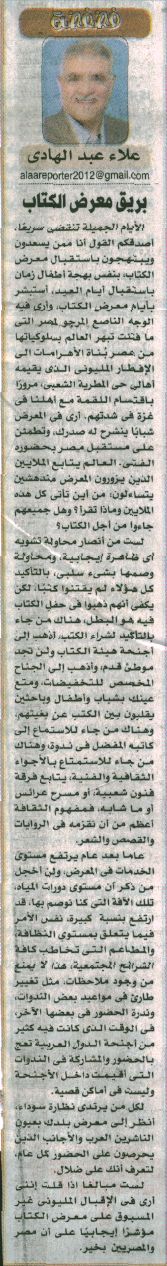 فضفضة
علاء عبد الهادى
alaareporter2012@gmail.com
بريق معرض الكتاب
الأيام الجميلة تنقضى سريعًا،
أصدقكم القول أنا ممن يسعدون
ويبتهجون باستقبال معرض
الكتاب، بنفس بهجة أطفال زمان
باستقبال أيام العيد، أستبشر
بأيام معرض الكتاب، وأرى فيه
الوجه الناصع المرجو لمصر التى
ما فتئت تبهر العالم بسلوكياتها
من عصر بُناة الأهرامات إلى
الإفطار المليونى الذى يقيمه
أهالى حى المطرية الشعبى، مرورًا
باقتسام اللقمة مع أهلنا فى
غزة فى شدتهم، أرى فى المعرض
شبابًا ينشرح له صدرك، وتطمئن
على مستقبل مصر بحضوره
الفتى. العالم يتابع الملايين
الذين يزورون المعرض مندهشين
يتساءلون: من أين تأتى كل هذه
الملايين وماذا تقرأ؟ وهل جميعهم
جاءوا من أجل الكتاب؟
لست من أنصار محاولة تشويه
أى ظاهرة إيجابية، ومحاولة
وصمها بشىء سلبى، بالتأكيد
كل هؤلاء لم يقتنوا كتبًا، لكن
يكفى أنهم ذهبوا فى حفل الكتاب
فيه هو البطل، هناك من جاء
بالتأكيد لشراء الكتب، اذهب إلى
أجنحة هيئة الكتاب ولن تجد
موطئ قدم، واذهب إلى الجناح
المخصص للتخفيضات، ومتع
عينك بشباب وأطفال وباحثين
يقلبون بين الكتب عن بغيتهم،
وهناك من جاء للاستماع إلى
كاتبه المفضل فى ندوة، وهناك
من جاء للاستمتاع بالأجواء
الثقافية والفنية، يتابع فرقة
فنون شعبية، أو مسرح عرائس
أو ما شابه، فمفهوم الثقافة
أعظم من أن نقزمه فى الروايات
والقصص والشعر.
عاما بعد عام يرتفع مستوى
الخدمات فى المعرض، ولن أخجل
من ذكر أن مستوى دورات المياه،
تلك الآفة التى كنا نوصم بها، قد
ارتفع بنسبة كبيرة، نفس الأمر
فيما يتعلق بمستوى النظافة،
والمطاعم التى تخاطب كافة
الشرائح المجتمعية، هذا لا يمنع
من وجود ملاحظات، مثل تغيير
طارئ فى مواعيد بعض الندوات،
وندرة الحضور فى بعضها الآخر،
فى الوقت الذى كانت فيه كثير
من أجنحة الدول العربية تعج
بالحضور والمشاركة فى الندوات
التى أقيمت داخل الأجنحة
وليست فى أماكن قصية.
لكل من يرتدى نظارة سوداء،
انظر إلى معرض بلدك بعيون
الناشرين العرب والأجانب الذين
يحرصون على الحضور كل عام،
لتعرف أنك على ضلال.
لست مبالغا إذا قلت إننى
أرى فى الإقبال المليونى غير
المسبوق على معرض الكتاب
مؤشرًا إيجابيًا على أن مصر
والمصريين بخير.